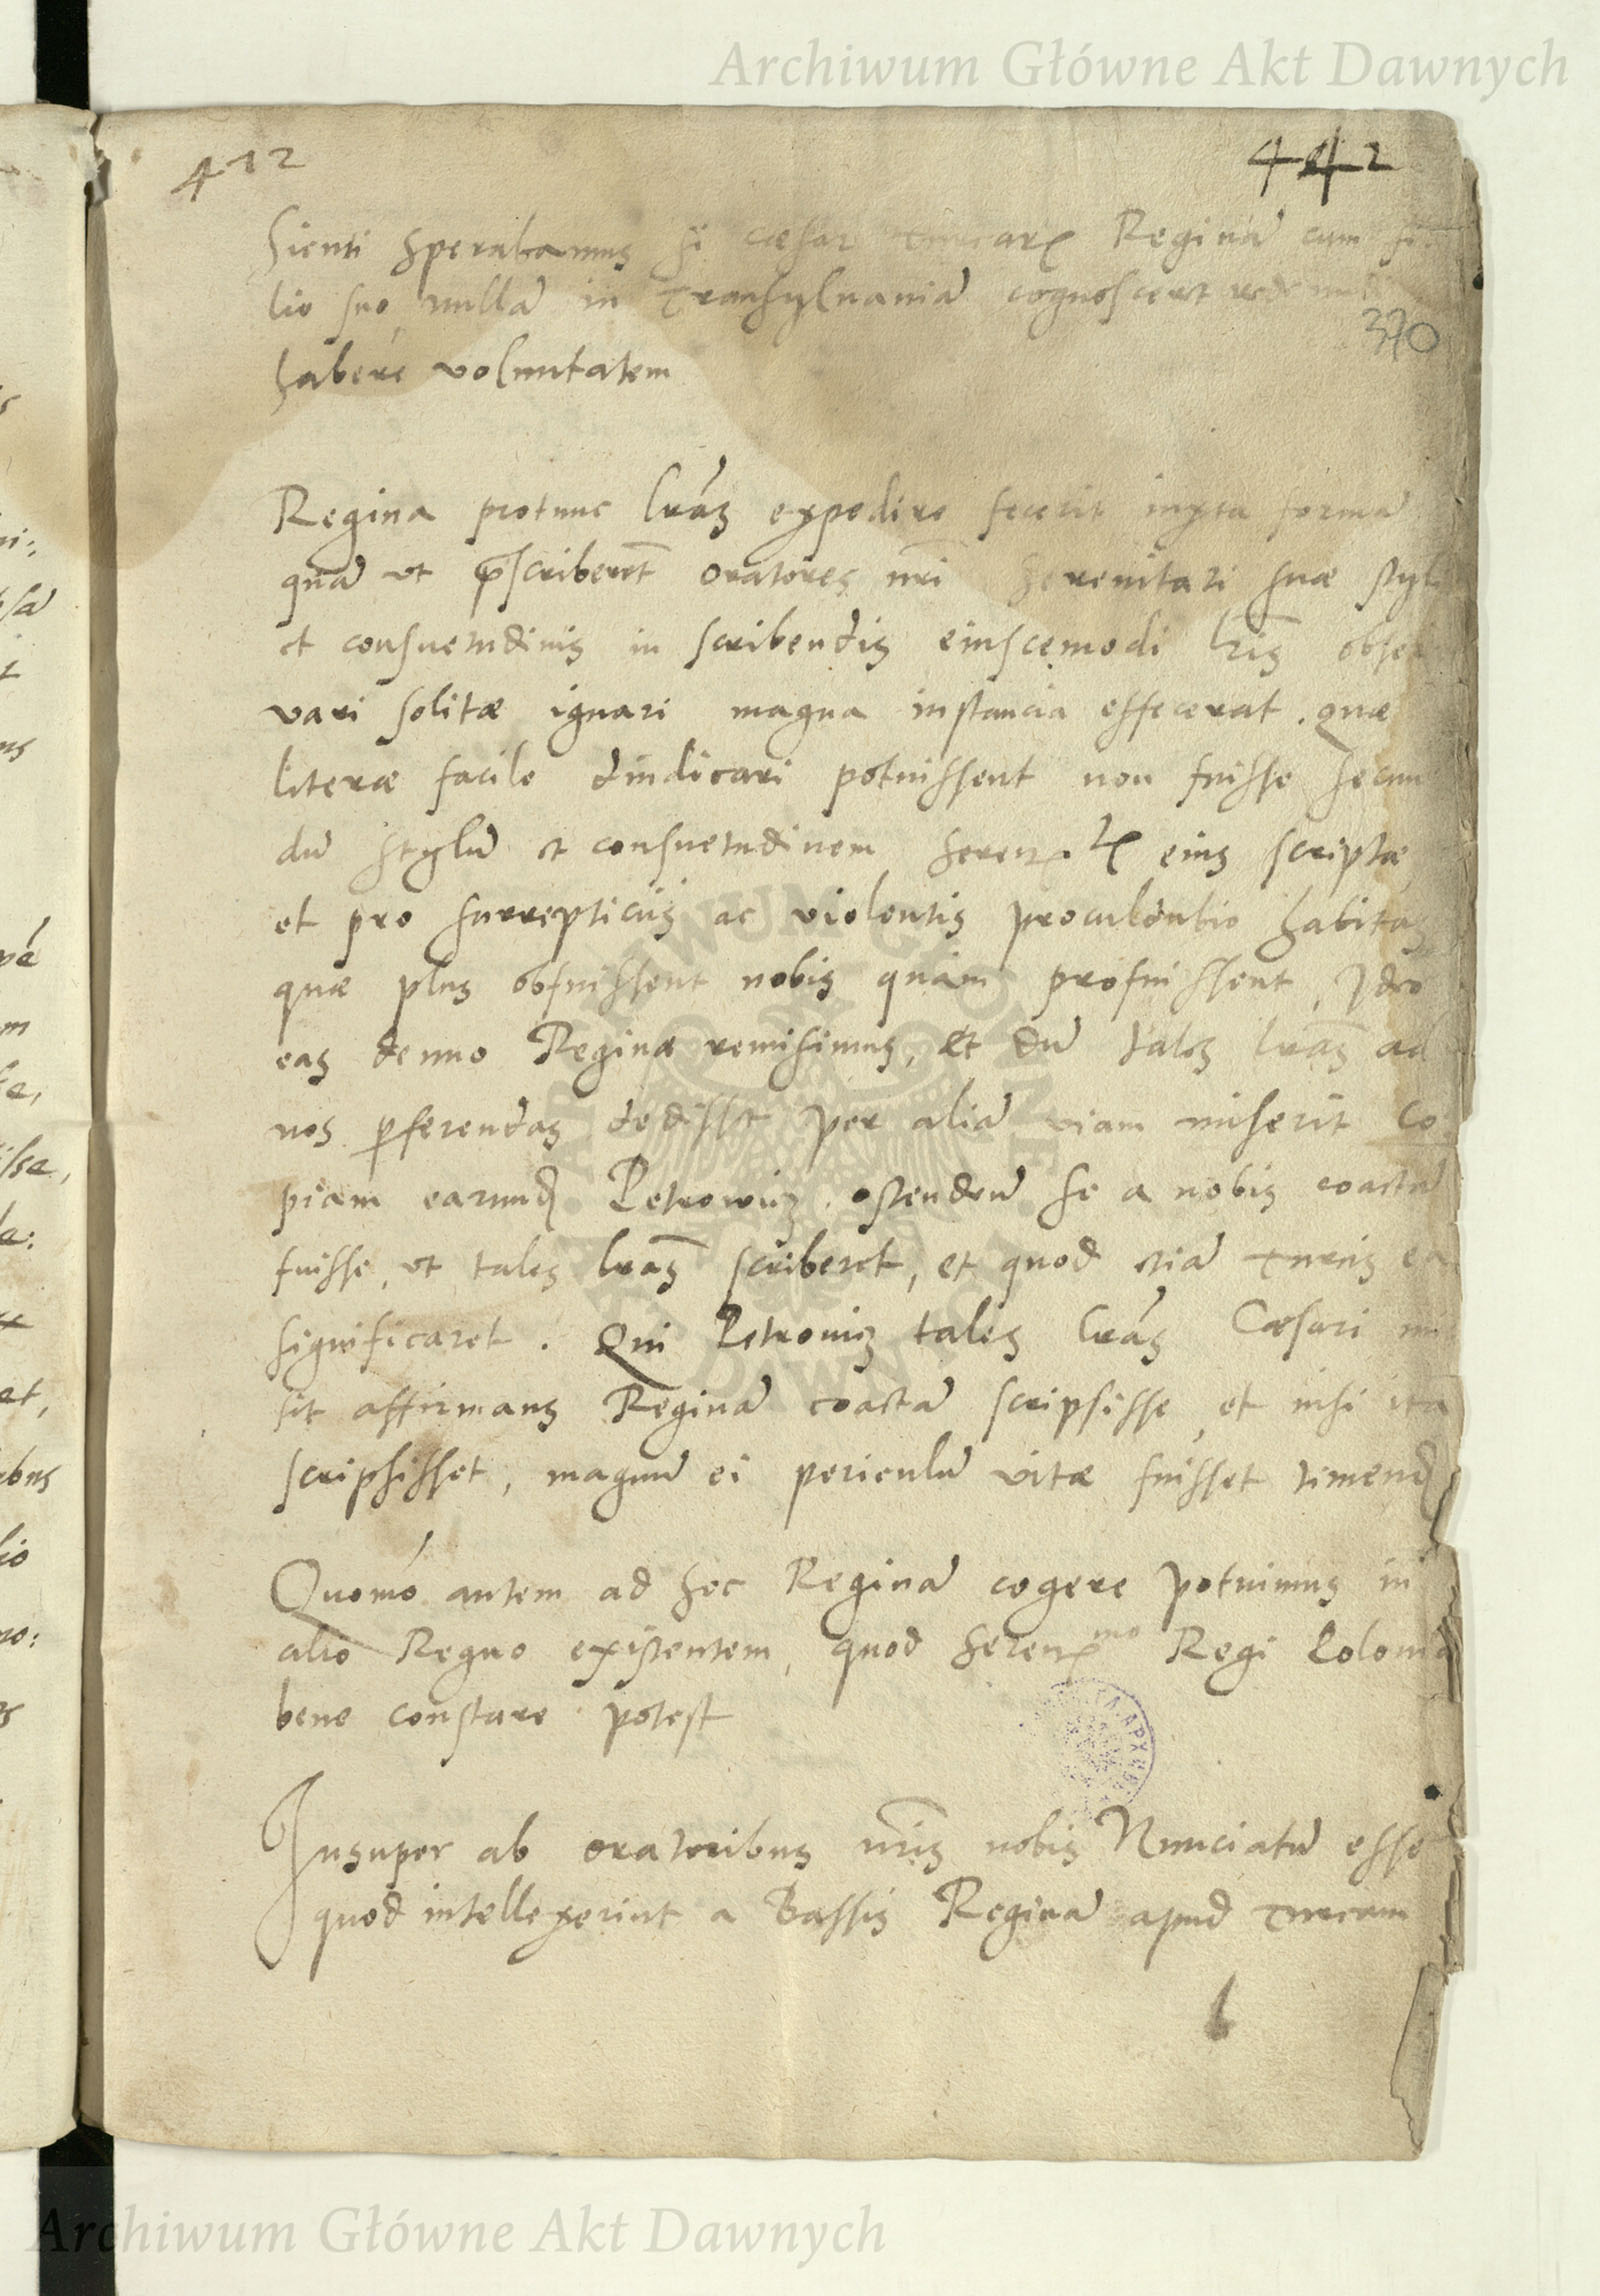 Archiwum Główne Akt Dawnych
412
442
sienti sperabamus si cæsar turcarꝝ Reginā cum fi
lio suo nullā in Transylvaniā cognosceret redeundi
370
habere voluntatem
Regina protunc lrās expedire fecerit iuxta formā
quā ut p̄scriberēt oratores nr̄i serenitati suæ styli
et consuetudinis in scribendis eiuscemodi lr̄is obser
vari solitæ ignari magna instancia effecerat. quæ
literæ facile diiudicari potuissent non fuisse secun
dū stylū et consuetudinem sereniss. eius scriptæ
et pro surrepticiis ac violentis proculdubio habitas
quæ plus obfuissent nobis quàm profuissent, Ideo
eas denuo Reginæ remisimus, et dū tales lrās ad
nos ꝑferendas dedisset per aliā viam miserit co
piam earund Petrowicz. ostendēdū se a nobis coactā
fuisse, ut tales lrās scriberet, et quod etiā turcis ea
significaret. Qui Petrovicz tales lrās Cæsari mi
sit affirmans Reginā coactā scripsisse, et nisi ita
scripsisset, magnū ei periculū vitæ fuisset timend
Quomó autem ad hec Reginā cogere potuimus in
alio Regno existentem, quod sereniss mo Regi Poloniæ
bene constare potest
Insuper ab oratoribus nr̄is nobis Nunciatū esse
quod intellexerint a Bassis Reginā apud turcam
b
Archiwum Główne Akt Dawnych